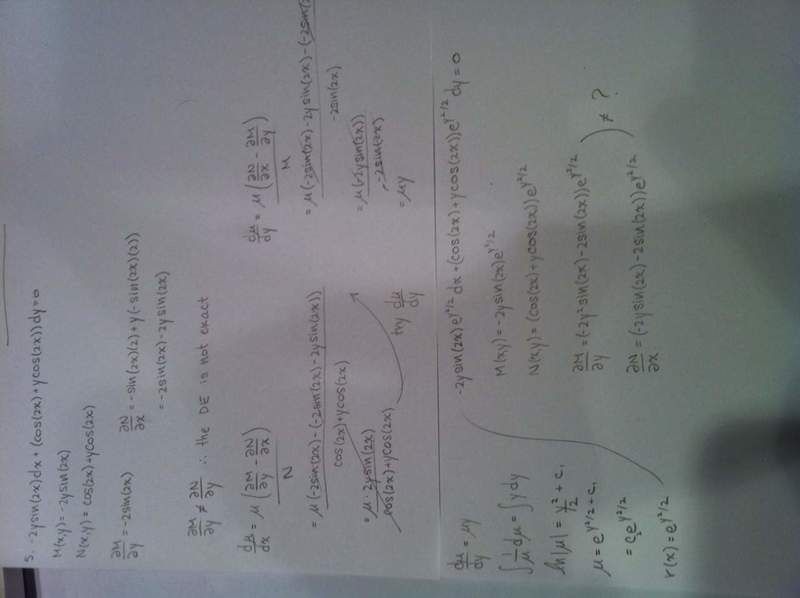 5. -2ysin(2x)dx + (cos(2x)+ycos(2x))dy=0
M(x,y)=-2ysin(2x)
N(x,y)=cos(2x)+ycos(2x)
∂M/∂y = -2sin(2x)
∂N/∂x = -sin(2x)(2)+y(-sin(2x)(2))
= -2sin(2x)-2ysin(2x)
∂M/∂y ≠ ∂N/∂y ∴ the DE is not exact
dμ/dx = μ(∂M/∂y - ∂N/∂x)/N
= μ(-2sin(2x)-(-2sin(2x)-2ysin(2x)))/cos(2x)+ycos(2x)
= μ·2ysin(2x)/cos(2x)+ycos(2x)
try dμ/dy
dμ/dy = μ(∂N/∂x - ∂M/∂y)/M
= μ(-2sin(2x)-2ysin(2x)-(-2sin(2x)/-2sin(2x)
= μ(-2ysin(2x))/-2sin(2x)
= μy
dμ/dy = μy
∫1/μ dμ = ∫y dy
ln|μ| = y²/2 + c₁
μ = e^(y²/2 + c₁)
= c₂e^(y²/2)
r(x) = e^(y²/2)
-2ysin(2x)e^(y²/2) dx + (cos(2x)+ycos(2x))e^(y²/2) dy = 0
M(x,y) = -2ysin(2x)e^(y²/2)
N(x,y) = (cos(2x)+ycos(2x))e^(y²/2)
∂M/∂y = (-2y²sin(2x)-2sin(2x))e^(y²/2)
≠ ?
∂N/∂x = (-2ysin(2x)-2sin(2x))e^(y²/2)